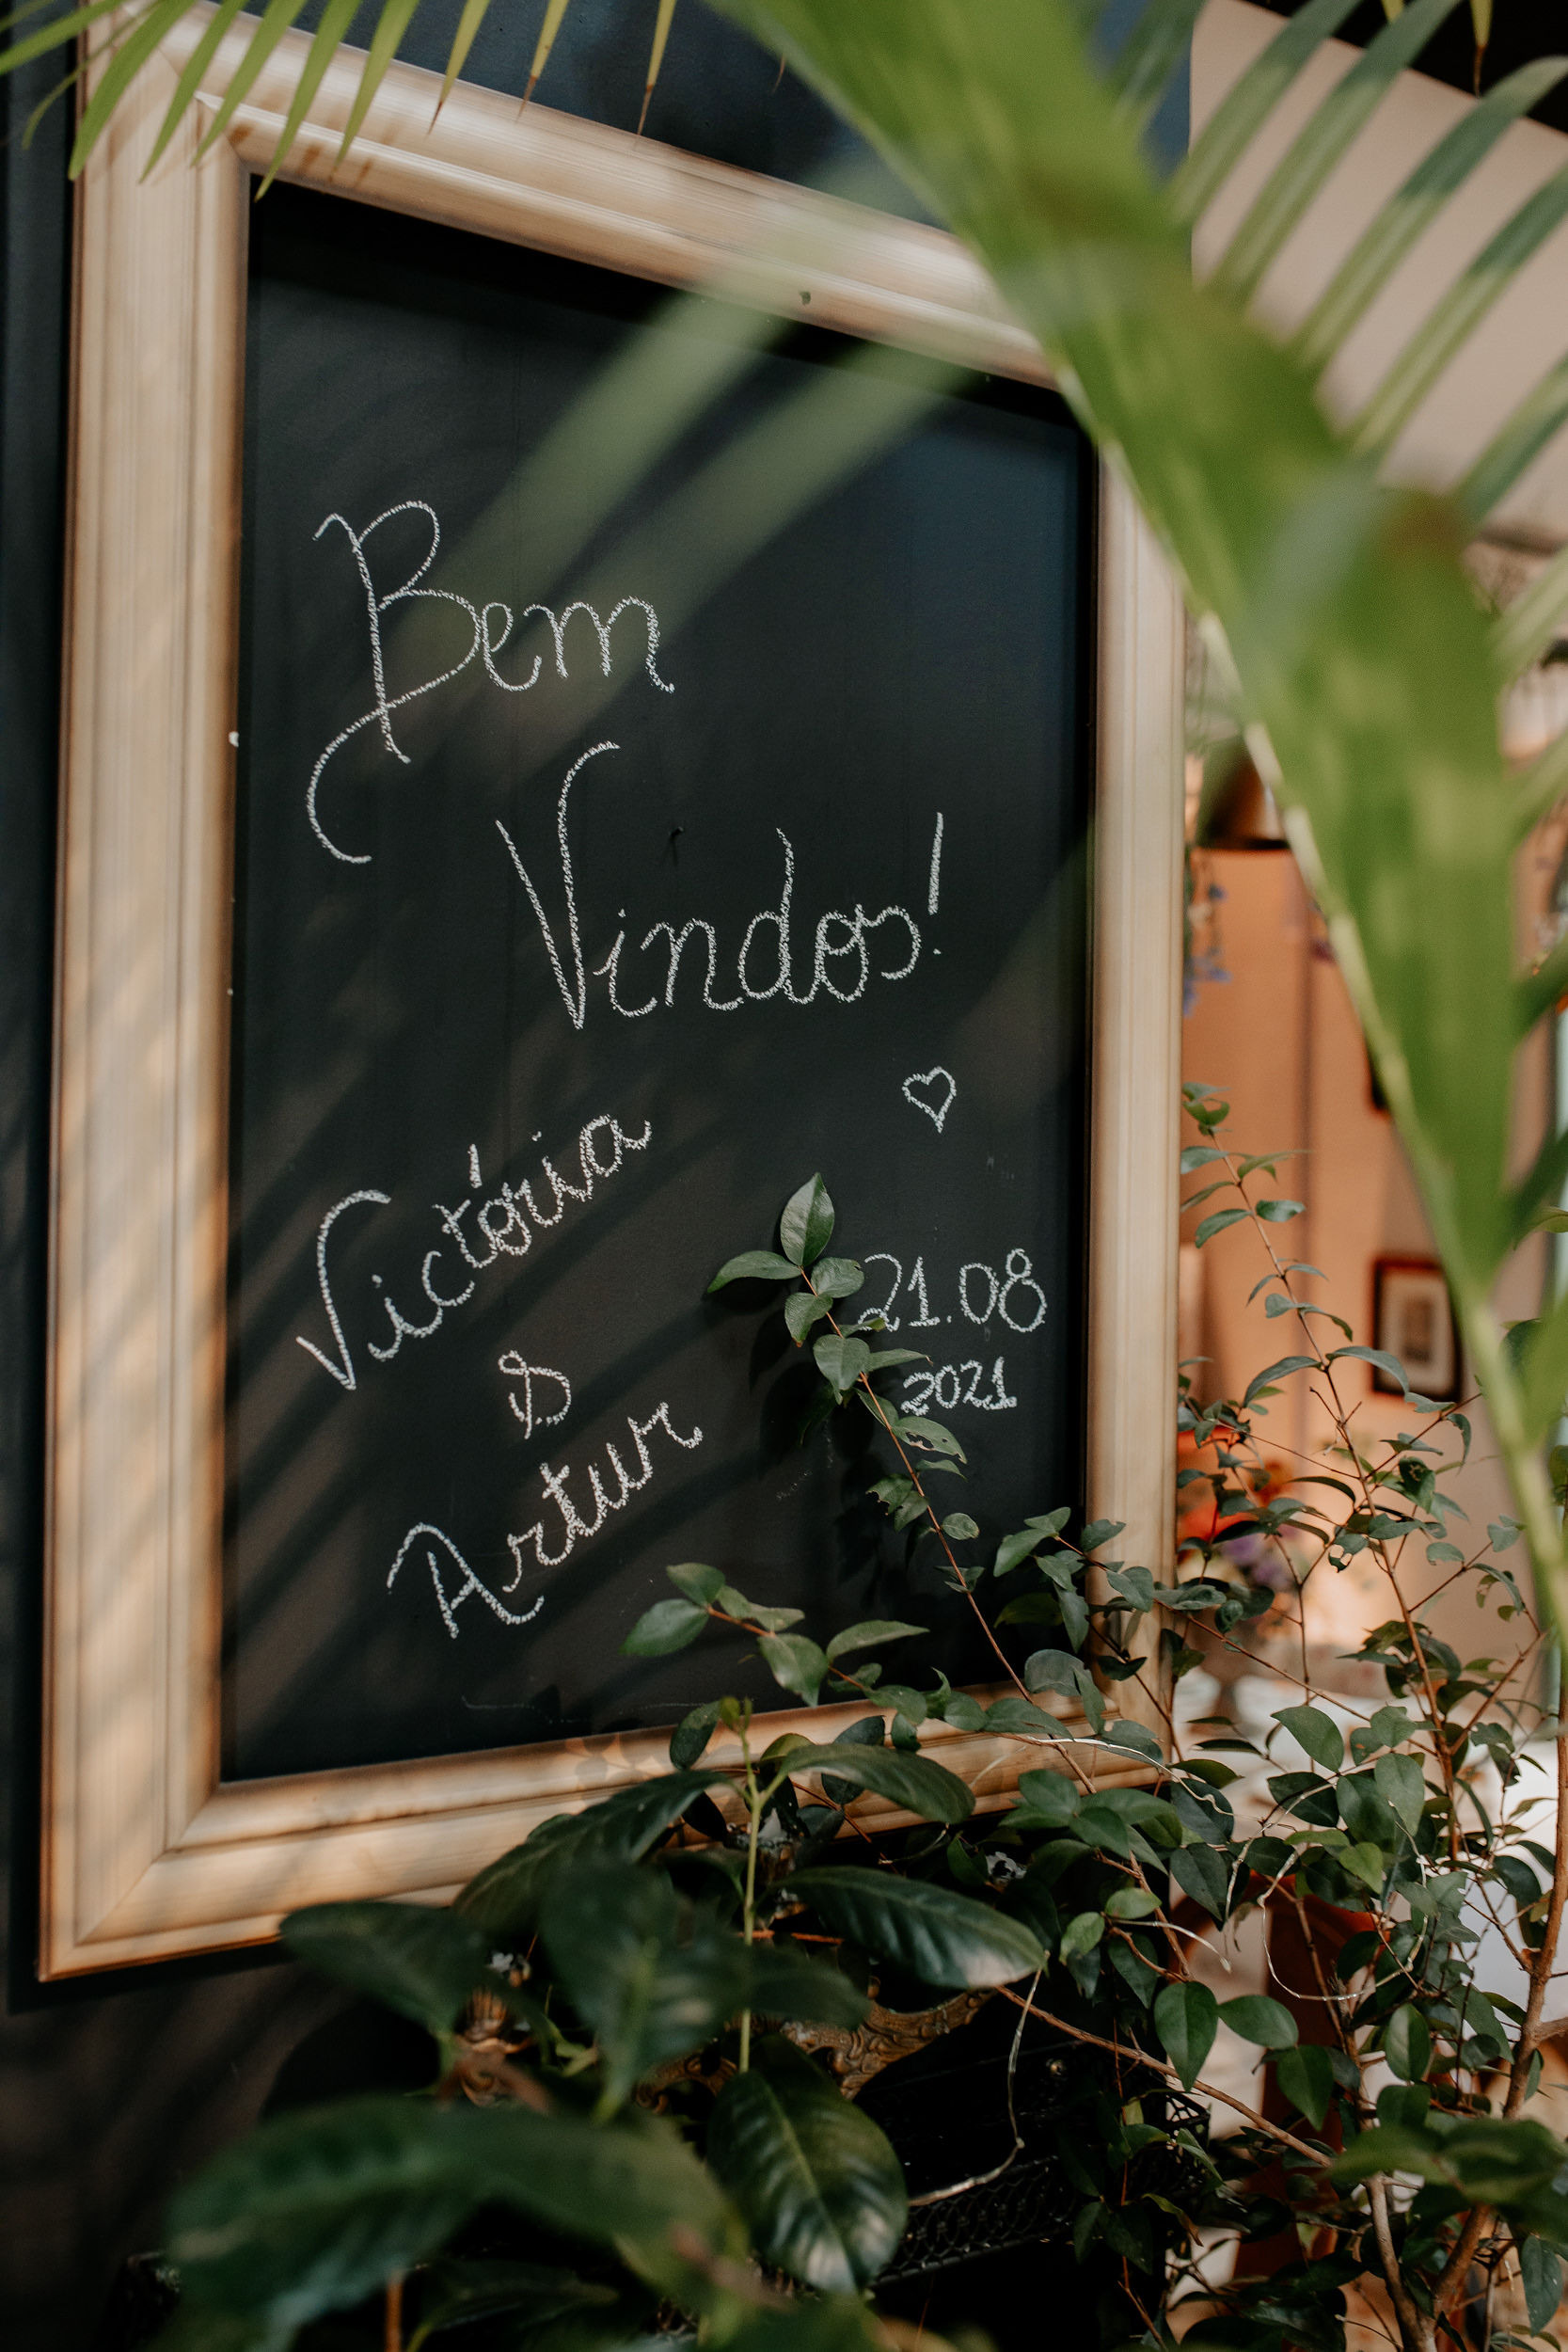 Bem
Vindos!
Victória
&
Artur
21.08
2021